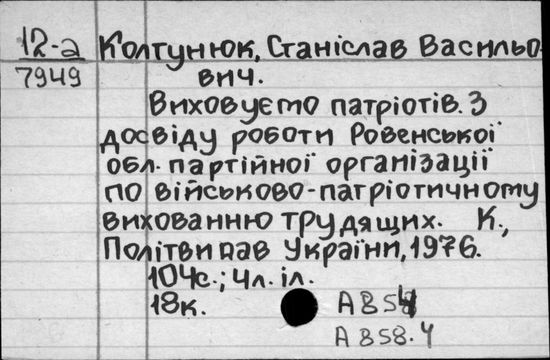 12-а
7949
Колтунюк, Станіслав Васильо-
вич.
Виховуємо патріотів. З
досвіду роботи Ровенської
обл. партійної організації
по військово-патріотичному
вихованню трудящих. К.,
Політвидав України, 1976.
104с.; 4л. іл.
18к.
А858.4